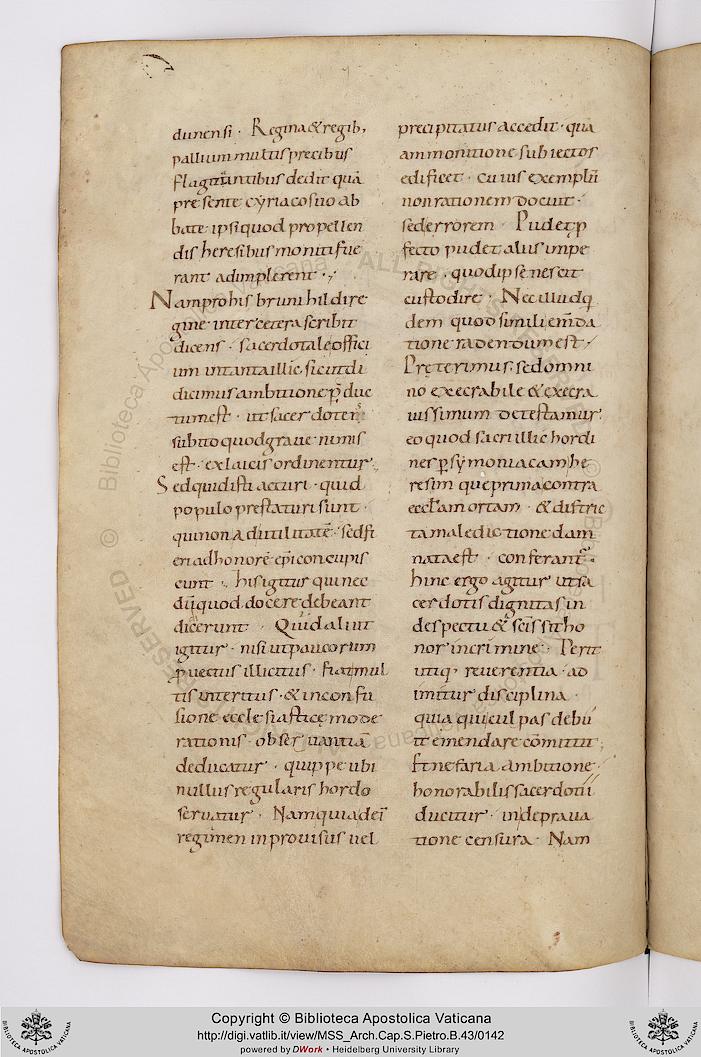 dunensi · Regina & regib;
pallium multis precibus
flagitantibus dedit quā
presente cyriaco suo ab
bate · ipsi quod propellen
dis heresibus moniti fue
rant adimplerent ·,
Nam pro his brunihildire
gine inter cetera scribit
dicens · sacerdotale offici
um in tanta illic sicut di
dicimus ambitione p̄duc
tum est · ut sacerdotes
subito quod graue nimis
est · ex laicis ordinentur ·
Sed quid isti acturi · quid
populo prestaturi sunt ·
qui non ad utilitatē · sed fi
eri ad honorē ep̄i concupis
cunt · hi sigitur qui nec
dū quod docere debeant
dicerunt · Quid aliut
igitur · nisi ut paucorum
ꝓuectus illicitus · fiat mul
tis interitus · & in confu
sione ecclesiasticę mode
rationis · obseruantiā
deducatur · quippe ubi
nullus regularis hordo
seruatur · Nam qui adeī
regimen inprouisus uel
precipitatus accedit · qua
ammonitione subiectos
edificet · cuius exemplū
non rationem docuit ·
sed errorem · Pudet ꝓ
fecto pudet aliis impe
rare · quod ipse nescit
custodire · Nec illud q
dem quod simili em̄da
tione radendum est ·
Pręterimus · sed omni
no execrabile & execra
uissimum detestamur ·
eo quod sacri illic hordi
nes p̲ symoniacam he
resim que prima contra
eccl̄am ortam · & distric
ta maledictione dam
nata est · conferant̄ ·
hinc ergo agitur ut sa
cerdotis dignitas in
despectu & sc̄s sit ho
nor in crimine · Perit
utiq; reuerentia · ad
imitur disciplina ·
quia qui culpas debu
it emendare cōmittit ;
Et nefaria ambitione ·
honorabilis sacerdotii
ducitur · in depraua
tione censura · Nam
Copyright © Biblioteca Apostolica Vaticana
http://digi.vatlib.it/view/MSS_Arch.Cap.S.Pietro.B.43/0142
powered by DWork • Heidelberg University Library